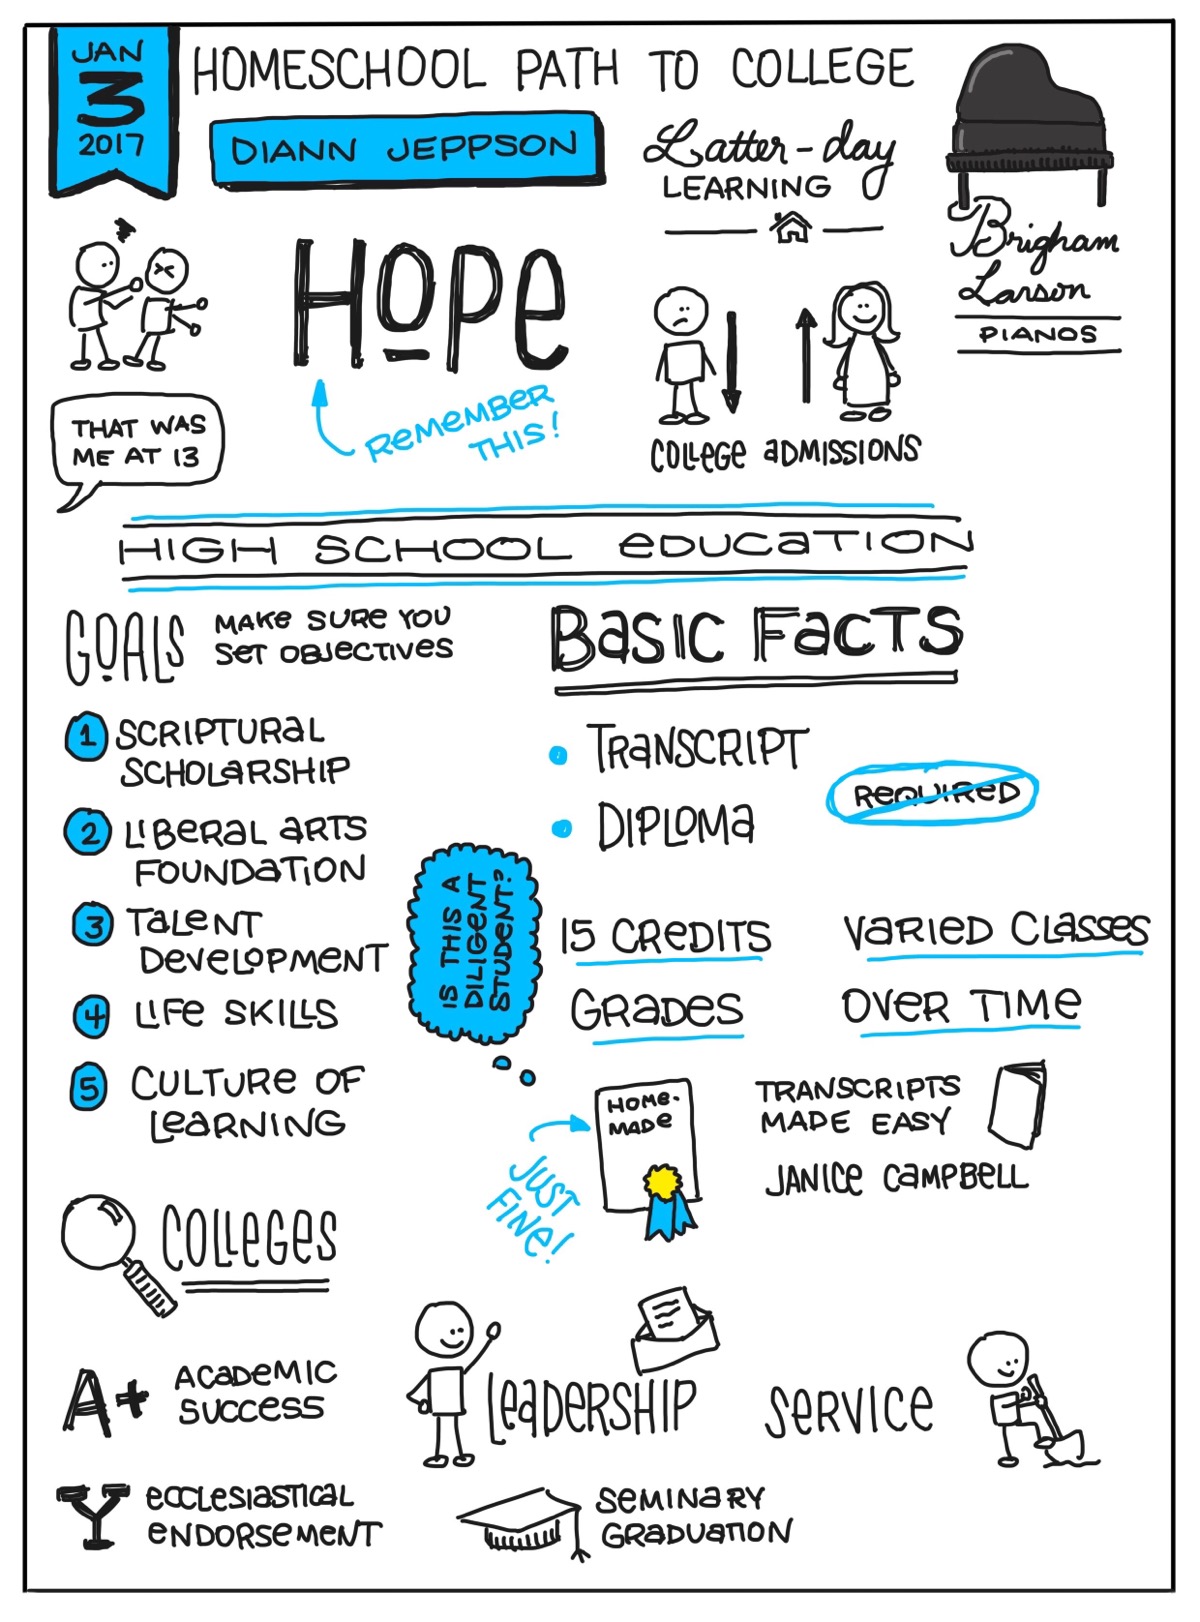 JAN
3
2017
HOMESCHOOL PATH TO COLLEGE
DIANN JEPPSON
Latter-day
LEARNING
Brigham
Larson
PIANOS
HOPE
REMEMBER
THIS!
THAT WAS
ME AT 13
COLLEGE ADMISSIONS
HIGH SCHOOL EDUCATION
GOALS
MAKE SURE YOU
SET OBJECTIVES
1 SCRIPTURAL
SCHOLARSHIP
2 LIBERAL ARTS
FOUNDATION
3 TALENT
DEVELOPMENT
4 LIFE SKILLS
5 CULTURE OF
LEARNING
BASIC FACTS
• TRANSCRIPT
• DIPLOMA
REQUIRED
IS THIS A
DILIGENT
STUDENT?
15 CREDITS
VARIED CLASSES
GRADES
OVER TIME
HOME-
MADE
JUST
FINE!
TRANSCRIPTS
MADE EASY
JANICE CAMPBELL
COLLEGES
A+ ACADEMIC
SUCCESS
LEADERSHIP
SERVICE
Y ECCLESIASTICAL
ENDORSEMENT
SEMINARY
GRADUATION